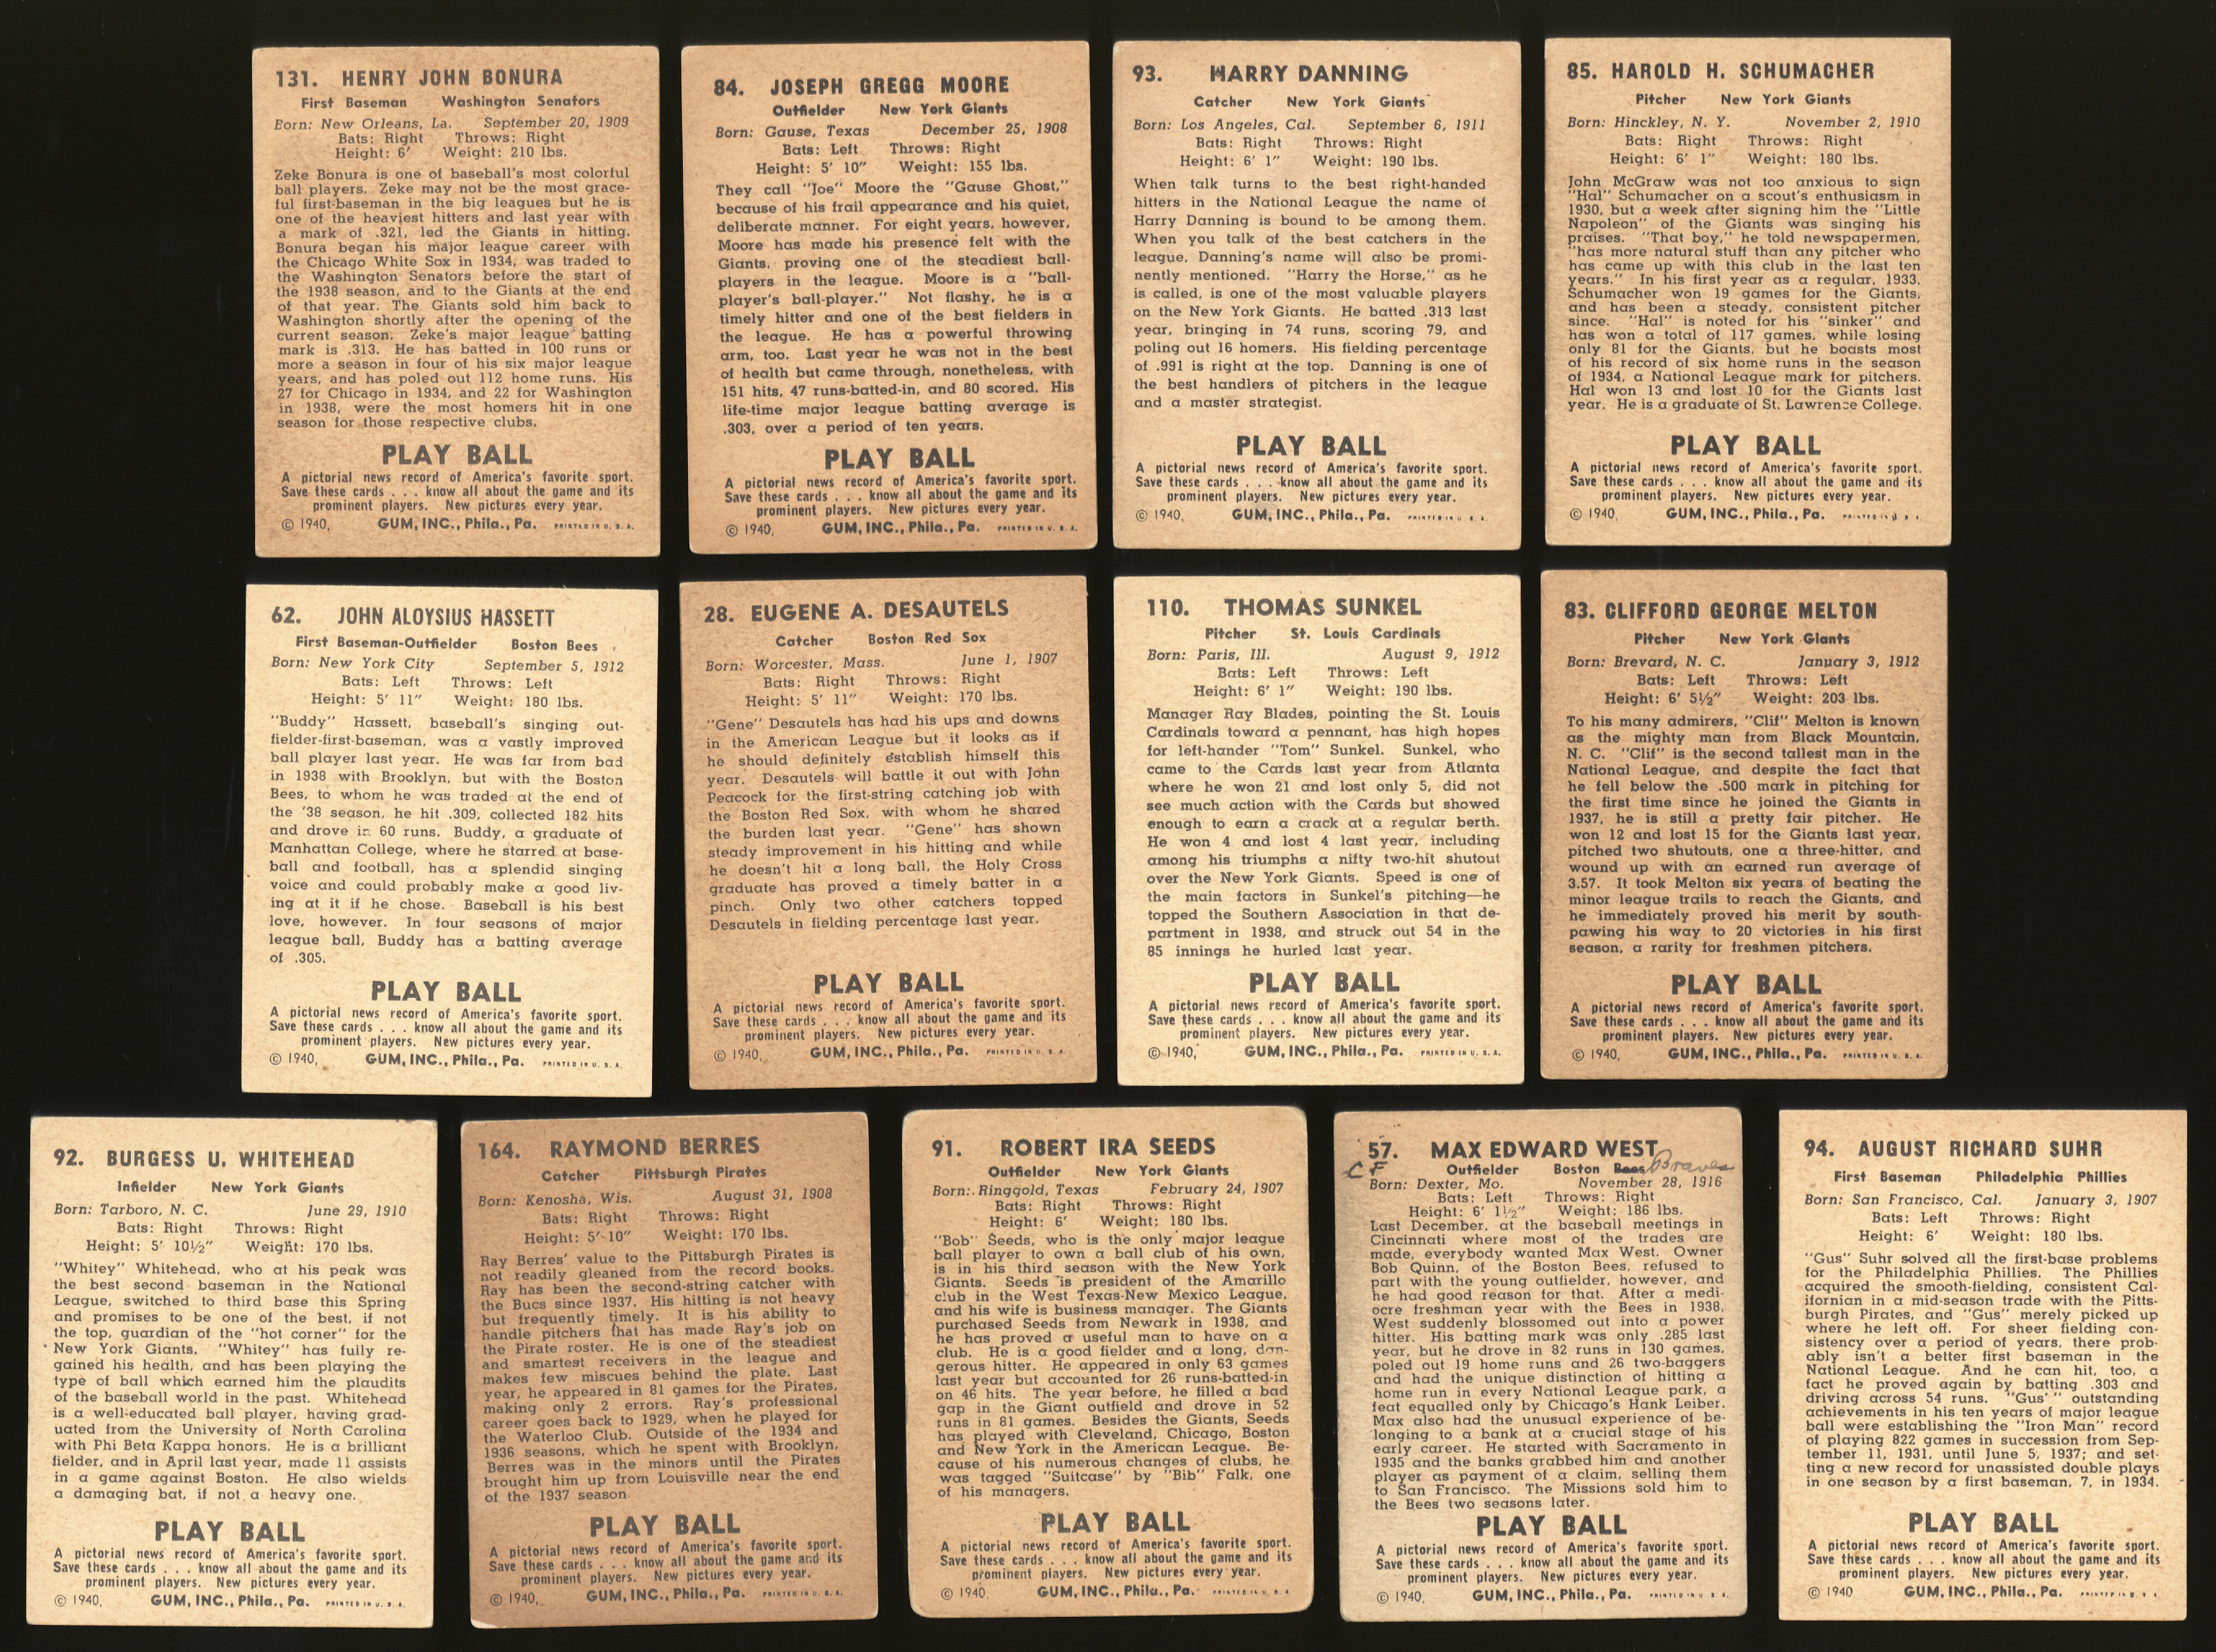 131. HENRY JOHN BONURA
First Baseman Washington Senators
Born: New Orleans, La. September 20, 1909
Bats: Right Throws: Right
Height: 6' Weight: 210 lbs.
Zeke Bonura is one of baseball's most colorful
ball players. Zeke may not be the most grace-
ful first-baseman in the big leagues but he is
one of the heaviest hitters and last year with
a mark of .321, led the Giants in hitting.
Bonura began his major league career with
the Chicago White Sox in 1934, was traded to
the Washington Senators before the start of
the 1938 season, and to the Giants at the end
of that year. The Giants sold him back to
Washington shortly after the opening of the
current season. Zeke's major league batting
mark is .313. He has batted in 100 runs or
more a season in four of his six major league
years, and has poled out 112 home runs. His
27 for Chicago in 1934, and 22 for Washington
in 1938, were the most homers hit in one
season for those respective clubs.
PLAY BALL
A pictorial news record of America's favorite sport.
Save these cards . . . know all about the game and its
prominent players. New pictures every year.
© 1940, GUM, INC., Phila., Pa. PRINTED IN U. S. A.
84. JOSEPH GREGG MOORE
Outfielder New York Giants
Born: Gause, Texas December 25, 1908
Bats: Left Throws: Right
Height: 5' 10" Weight: 155 lbs.
They call "Joe" Moore the "Gause Ghost,"
because of his frail appearance and his quiet,
deliberate manner. For eight years, however,
Moore has made his presence felt with the
Giants, proving one of the steadiest ball-
players in the league. Moore is a "ball-
player's ball-player." Not flashy, he is a
timely hitter and one of the best fielders in
the league. He has a powerful throwing
arm, too. Last year he was not in the best
of health but came through, nonetheless, with
151 hits, 47 runs-batted-in, and 80 scored. His
life-time major league batting average is
.303, over a period of ten years.
PLAY BALL
A pictorial news record of America's favorite sport.
Save these cards . . . know all about the game and its
prominent players. New pictures every year.
© 1940, GUM, INC., Phila., Pa. PRINTED IN U. S. A.
93. HARRY DANNING
Catcher New York Giants
Born: Los Angeles, Cal. September 6, 1911
Bats: Right Throws: Right
Height: 6' 1" Weight: 190 lbs.
When talk turns to the best right-handed
hitters in the National League the name of
Harry Danning is bound to be among them.
When you talk of the best catchers in the
league, Danning's name will also be promi-
nently mentioned. "Harry the Horse," as he
is called, is one of the most valuable players
on the New York Giants. He batted .313 last
year, bringing in 74 runs, scoring 79, and
poling out 16 homers. His fielding percentage
of .991 is right at the top. Danning is one of
the best handlers of pitchers in the league
and a master strategist.
PLAY BALL
A pictorial news record of America's favorite sport.
Save these cards . . . know all about the game and its
prominent players. New pictures every year.
© 1940, GUM, INC., Phila., Pa. PRINTED IN U. S. A.
85. HAROLD H. SCHUMACHER
Pitcher New York Giants
Born: Hinckley, N. Y. November 2, 1910
Bats: Right Throws: Right
Height: 6' 1" Weight: 180 lbs.
John McGraw was not too anxious to sign
"Hal" Schumacher on a scout's enthusiasm in
1930, but a week after signing him the "Little
Napoleon" of the Giants was singing his
praises. "That boy," he told newspapermen,
"has more natural stuff than any pitcher who
has came up with this club in the last ten
years." In his first year as a regular, 1933,
Schumacher won 19 games for the Giants,
and has been a steady, consistent pitcher
since. "Hal" is noted for his "sinker" and
has won a total of 117 games, while losing
only 81 for the Giants, but he boasts most
of his record of six home runs in the season
of 1934, a National League mark for pitchers.
Hal won 13 and lost 10 for the Giants last
year. He is a graduate of St. Lawrence College.
PLAY BALL
A pictorial news record of America's favorite sport.
Save these cards . . . know all about the game and its
prominent players. New pictures every year.
© 1940, GUM, INC., Phila., Pa. PRINTED IN U. S. A.
62. JOHN ALOYSIUS HASSETT
First Baseman-Outfielder Boston Bees
Born: New York City September 5, 1912
Bats: Left Throws: Left
Height: 5' 11" Weight: 180 lbs.
"Buddy" Hassett, baseball's singing out-
fielder-first-baseman, was a vastly improved
ball player last year. He was far from bad
in 1938 with Brooklyn, but with the Boston
Bees, to whom he was traded at the end of
the '38 season, he hit .309, collected 182 hits
and drove in 60 runs. Buddy, a graduate of
Manhattan College, where he starred at base-
ball and football, has a splendid singing
voice and could probably make a good liv-
ing at it if he chose. Baseball is his best
love, however. In four seasons of major
league ball, Buddy has a batting average
of .305.
PLAY BALL
A pictorial news record of America's favorite sport.
Save these cards . . . know all about the game and its
prominent players. New pictures every year.
© 1940, GUM, INC., Phila., Pa. PRINTED IN U. S. A.
28. EUGENE A. DESAUTELS
Catcher Boston Red Sox
Born: Worcester, Mass. June 1, 1907
Bats: Right Throws: Right
Height: 5' 11" Weight: 170 lbs.
"Gene" Desautels has had his ups and downs
in the American League but it looks as if
he should definitely establish himself this
year. Desautels will battle it out with John
Peacock for the first-string catching job with
the Boston Red Sox, with whom he shared
the burden last year. "Gene" has shown
steady improvement in his hitting and while
he doesn't hit a long ball, the Holy Cross
graduate has proved a timely batter in a
pinch. Only two other catchers topped
Desautels in fielding percentage last year.
PLAY BALL
A pictorial news record of America's favorite sport.
Save these cards . . . know all about the game and its
prominent players. New pictures every year.
© 1940, GUM, INC., Phila., Pa. PRINTED IN U. S. A.
110. THOMAS SUNKEL
Pitcher St. Louis Cardinals
Born: Paris, Ill. August 9, 1912
Bats: Left Throws: Left
Height: 6' 1" Weight: 190 lbs.
Manager Ray Blades, pointing the St. Louis
Cardinals toward a pennant, has high hopes
for left-hander "Tom" Sunkel. Sunkel, who
came to the Cards last year from Atlanta
where he won 21 and lost only 5, did not
see much action with the Cards but showed
enough to earn a crack at a regular berth.
He won 4 and lost 4 last year, including
among his triumphs a nifty two-hit shutout
over the New York Giants. Speed is one of
the main factors in Sunkel's pitching—he
topped the Southern Association in that de-
partment in 1938, and struck out 54 in the
85 innings he hurled last year.
PLAY BALL
A pictorial news record of America's favorite sport.
Save these cards . . . know all about the game and its
prominent players. New pictures every year.
© 1940, GUM, INC., Phila., Pa. PRINTED IN U. S. A.
83. CLIFFORD GEORGE MELTON
Pitcher New York Giants
Born: Brevard, N. C. January 3, 1912
Bats: Left Throws: Left
Height: 6' 5½" Weight: 203 lbs.
To his many admirers, "Clif" Melton is known
as the mighty man from Black Mountain,
N. C. "Clif" is the second tallest man in the
National League, and despite the fact that
he fell below the .500 mark in pitching for
the first time since he joined the Giants in
1937, he is still a pretty fair pitcher. He
won 12 and lost 15 for the Giants last year,
pitched two shutouts, one a three-hitter, and
wound up with an earned run average of
3.57. It took Melton six years of beating the
minor league trails to reach the Giants, and
he immediately proved his merit by south-
pawing his way to 20 victories in his first
season, a rarity for freshmen pitchers.
PLAY BALL
A pictorial news record of America's favorite sport.
Save these cards . . . know all about the game and its
prominent players. New pictures every year.
© 1940, GUM, INC., Phila., Pa. PRINTED IN U. S. A.
92. BURGESS U. WHITEHEAD
Infielder New York Giants
Born: Tarboro, N. C. June 29, 1910
Bats: Right Throws: Right
Height: 5' 10½" Weight: 170 lbs.
"Whitey" Whitehead, who at his peak was
the best second baseman in the National
League, switched to third base this Spring
and promises to be one of the best, if not
the top, guardian of the "hot corner" for the
New York Giants. "Whitey" has fully re-
gained his health, and has been playing the
type of ball which earned him the plaudits
of the baseball world in the past. Whitehead
is a well-educated ball player, having grad-
uated from the University of North Carolina
with Phi Beta Kappa honors. He is a brilliant
fielder, and in April last year, made 11 assists
in a game against Boston. He also wields
a damaging bat, if not a heavy one.
PLAY BALL
A pictorial news record of America's favorite sport.
Save these cards . . . know all about the game and its
prominent players. New pictures every year.
© 1940, GUM, INC., Phila., Pa. PRINTED IN U. S. A.
164. RAYMOND BERRES
Catcher Pittsburgh Pirates
Born: Kenosha, Wis. August 31, 1908
Bats: Right Throws: Right
Height: 5' 10" Weight: 170 lbs.
Ray Berres' value to the Pittsburgh Pirates is
not readily gleaned from the record books.
Ray has been the second-string catcher with
the Bucs since 1937. His hitting is not heavy
but frequently timely. It is his ability to
handle pitchers that has made Ray's job on
the Pirate roster. He is one of the steadiest
and smartest receivers in the league and
makes few miscues behind the plate. Last
year, he appeared in 81 games for the Pirates,
making only 2 errors. Ray's professional
career goes back to 1929, when he played for
the Waterloo Club. Outside of the 1934 and
1936 seasons, which he spent with Brooklyn,
Berres was in the minors until the Pirates
brought him up from Louisville near the end
of the 1937 season
PLAY BALL
A pictorial news record of America's favorite sport.
Save these cards . . . know all about the game and its
prominent players. New pictures every year.
© 1940, GUM, INC., Phila., Pa. PRINTED IN U. S. A.
91. ROBERT IRA SEEDS
Outfielder New York Giants
Born: Ringgold, Texas February 24, 1907
Bats: Right Throws: Right
Height: 6' Weight: 180 lbs.
"Bob" Seeds, who is the only major league
ball player to own a ball club of his own,
is in his third season with the New York
Giants. Seeds is president of the Amarillo
club in the West Texas-New Mexico League,
and his wife is business manager. The Giants
purchased Seeds from Newark in 1938, and
he has proved a useful man to have on a
club. He is a good fielder and a long, dan-
gerous hitter. He appeared in only 63 games
last year but accounted for 26 runs-batted-in
on 46 hits. The year before, he filled a bad
gap in the Giant outfield and drove in 52
runs in 81 games. Besides the Giants, Seeds
has played with Cleveland, Chicago, Boston
and New York in the American League. Be-
cause of his numerous changes of clubs, he
was tagged "Suitcase" by "Bib" Falk, one
of his managers.
PLAY BALL
A pictorial news record of America's favorite sport.
Save these cards . . . know all about the game and its
prominent players. New pictures every year.
© 1940, GUM, INC., Phila., Pa. PRINTED IN U. S. A.
57. MAX EDWARD WEST
CF Outfielder Boston Bees Braves
Born: Dexter, Mo. November 28, 1916
Bats: Left Throws: Right
Height: 6' 1½" Weight: 186 lbs.
Last December, at the baseball meetings in
Cincinnati where most of the trades are
made, everybody wanted Max West. Owner
Bob Quinn, of the Boston Bees, refused to
part with the young outfielder, however, and
he had good reason for that. After a medi-
ocre freshman year with the Bees in 1938,
West suddenly blossomed out into a power
hitter. His batting mark was only .285 last
year, but he drove in 82 runs in 130 games,
poled out 19 home runs and 26 two-baggers
and had the unique distinction of hitting a
home run in every National League park, a
feat equalled only by Chicago's Hank Leiber.
Max also had the unusual experience of be-
longing to a bank at a crucial stage of his
early career. He started with Sacramento in
1935 and the banks grabbed him and another
player as payment of a claim, selling them
to San Francisco. The Missions sold him to
the Bees two seasons later.
PLAY BALL
A pictorial news record of America's favorite sport.
Save these cards . . . know all about the game and its
prominent players. New pictures every year.
© 1940, GUM, INC., Phila., Pa. PRINTED IN U. S. A.
94. AUGUST RICHARD SUHR
First Baseman Philadelphia Phillies
Born: San Francisco, Cal. January 3, 1907
Bats: Left Throws: Right
Height: 6' Weight: 180 lbs.
"Gus" Suhr solved all the first-base problems
for the Philadelphia Phillies. The Phillies
acquired the smooth-fielding, consistent Cal-
ifornian in a mid-season trade with the Pitts-
burgh Pirates, and "Gus" merely picked up
where he left off. For sheer fielding con-
sistency over a period of years, there prob-
ably isn't a better first baseman in the
National League. And he can hit, too, a
fact he proved again by batting .303 and
driving across 54 runs. "Gus'" outstanding
achievements in his ten years of major league
ball were establishing the "Iron Man" record
of playing 822 games in succession from Sep-
tember 11, 1931, until June 5, 1937; and set-
ting a new record for unassisted double plays
in one season by a first baseman, 7, in 1934.
PLAY BALL
A pictorial news record of America's favorite sport.
Save these cards . . . know all about the game and its
prominent players. New pictures every year.
© 1940 GUM, INC., Phila., Pa. PRINTED IN U. S. A.